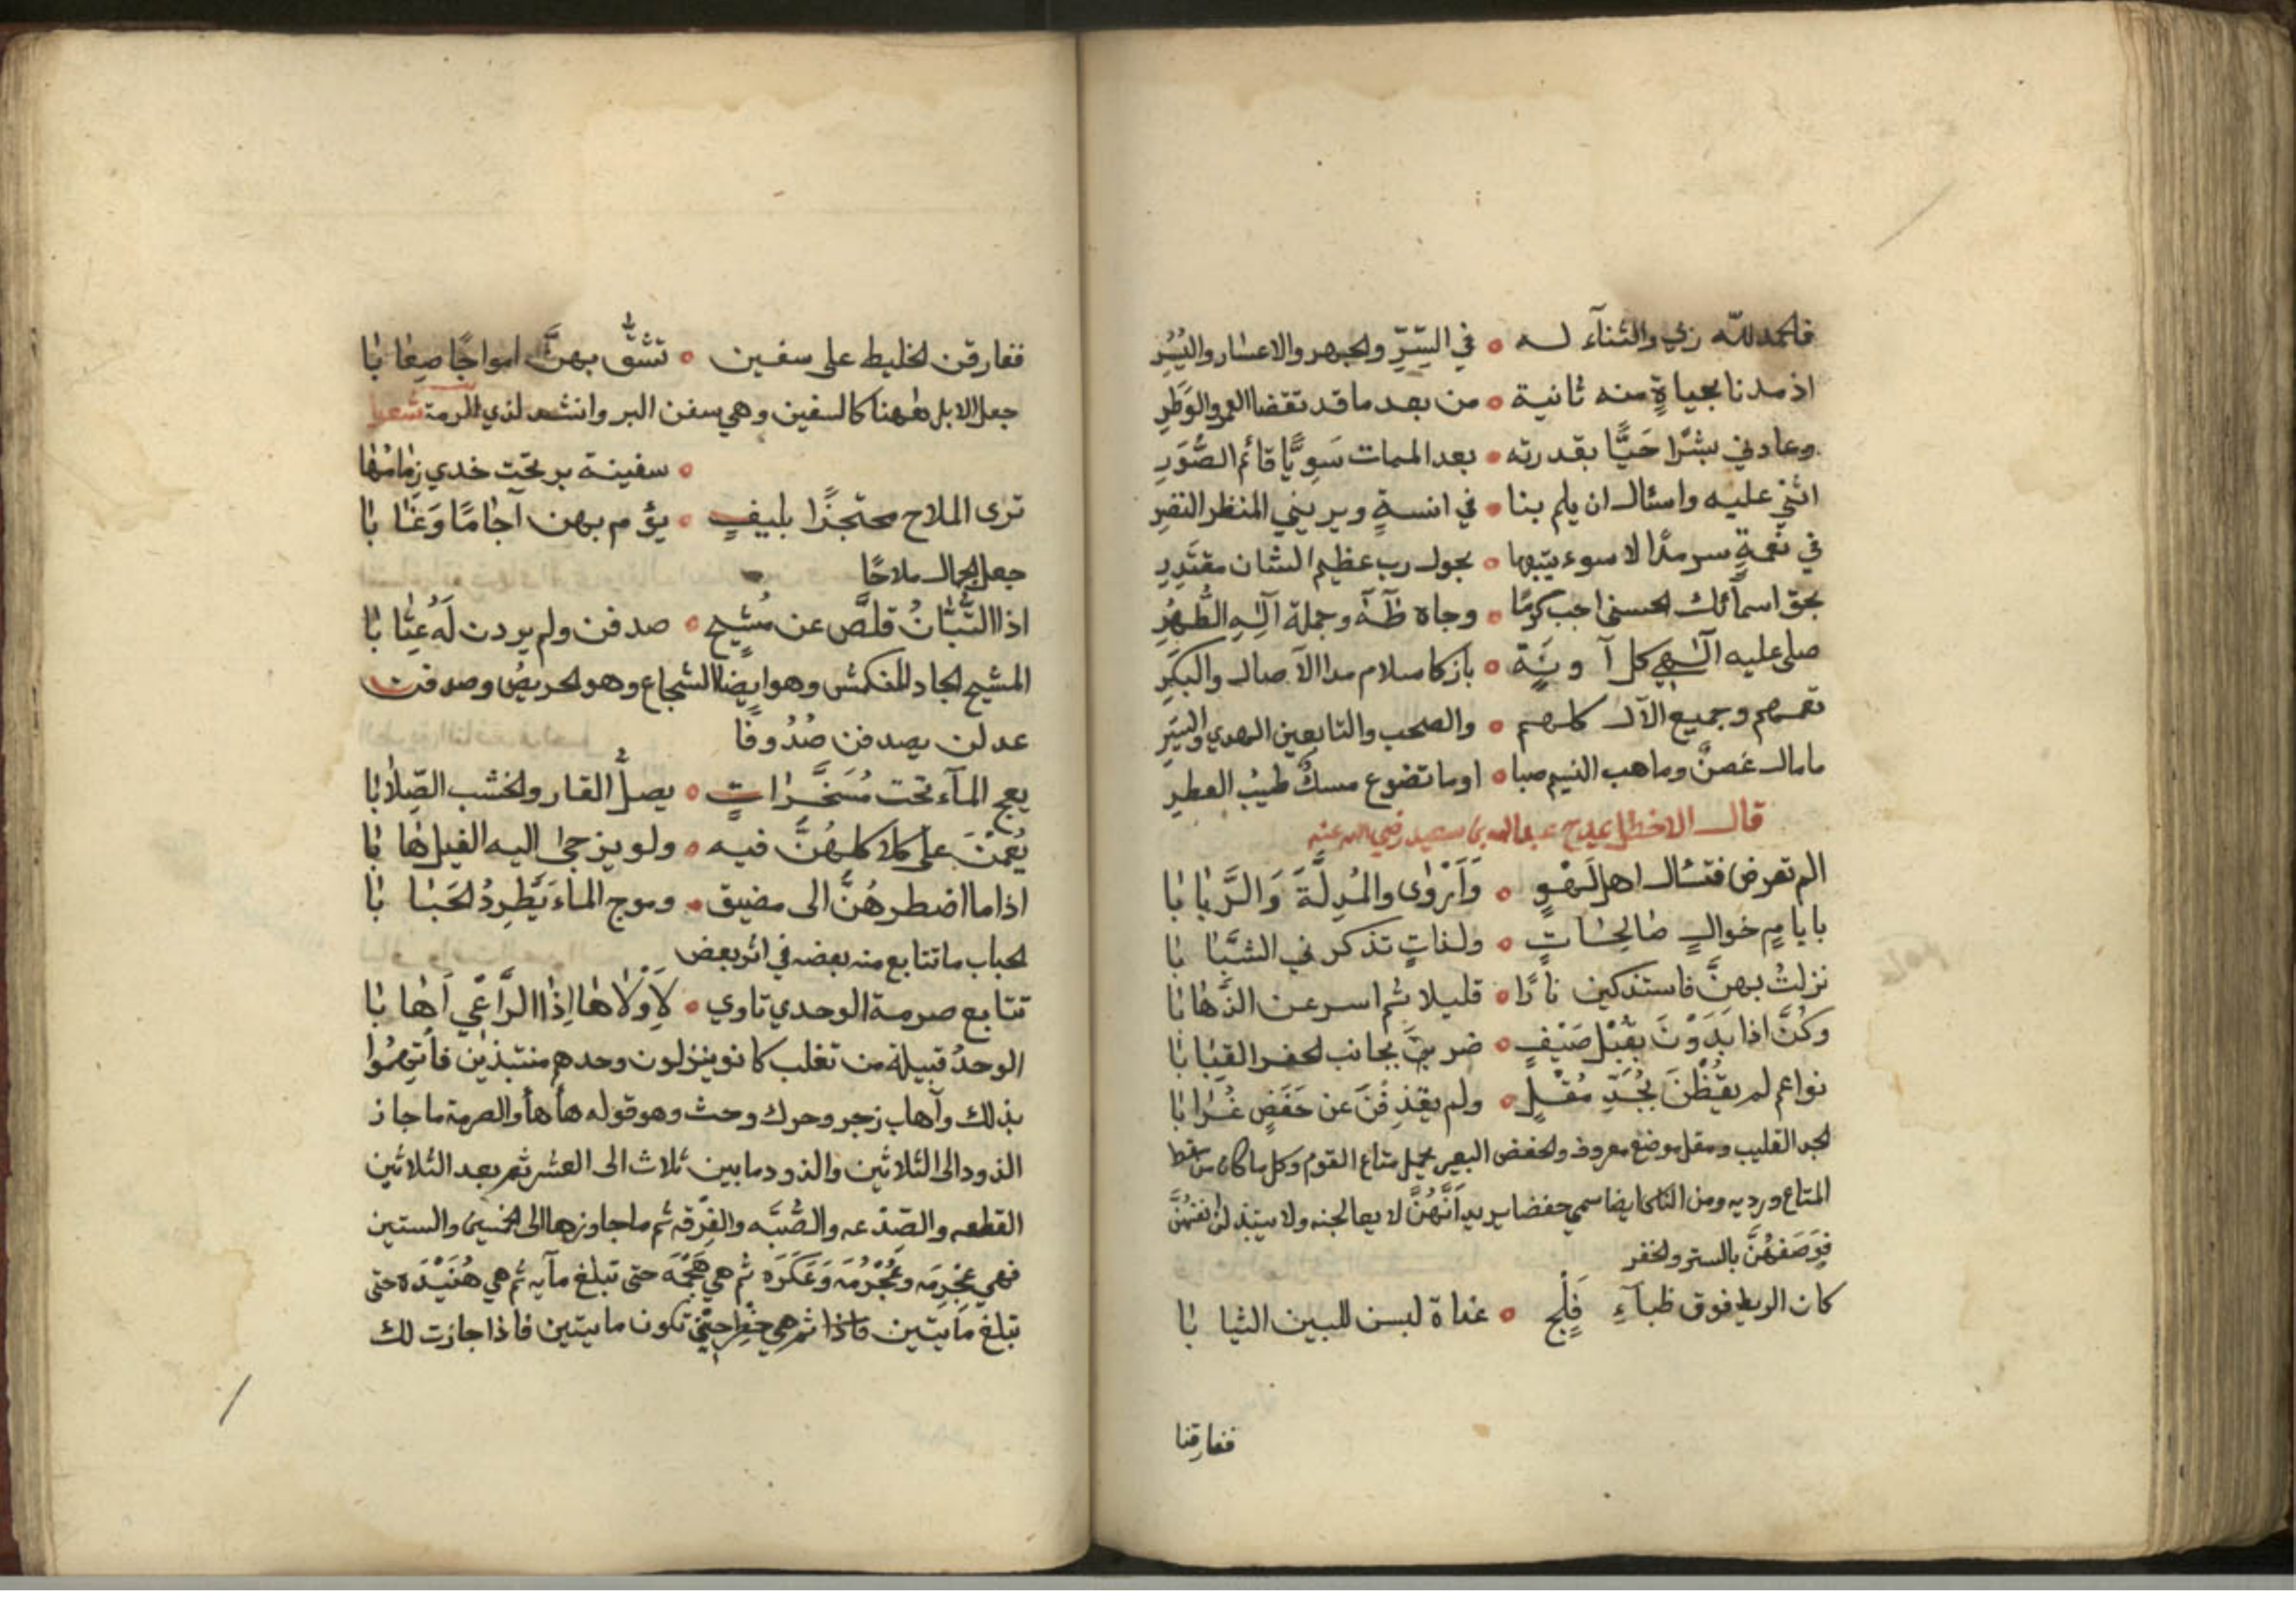 فالحمد لله ربي والثناء له ه في السّرِّ والجهر والاعسار واليُسُرِ
اذ مدنا بحياةٍ منه ثانية ه من بعد ما قد تقضا العمر والوَطَرِ
وعادني بشرًا حَيًّا بقدرته ه بعد الممات سَوِيًّا قائم الصُّوَرِ
اثني عليه واسئال ان يلم بنا ه في انسةٍ ويريني المنظر النضِرِ
في نعمةٍ سرمدًا لا سوء يتبها ه بحول رب عظيم الشان مقتدِرِ
بحق اسمآئك الحسنى اجب كرمًا ه وجاه طٰهَ وجملة آلِهِ الطُّهُرِ
صلى عليه آلهي كل آونَةٍ ه بازكا سلام مدا الآصال والبكَرِ
تعمهم وجميع الآل كلهم ه والصحب والتابعين الهدي والسيَرِ
ما مال غصنٌ وما هب النسيم صبا ه اوما تضوع مسكٌ طيبُ العطرِ
قال الاخطل يمدح عبد الله بن سعيد رضي الله عنه
الم تعرض فتسال اهل لَهْوٍ ه وَأَرْوٰى والمُدِلَّةَ وَالرَّبٰابٰا
بايامٍ خوالٍ صٰالِحٰاتٍ ه ولذاتٍ تذكرني الشبٰابٰا
نزلتُ بهنَّ فاستذكين نارًا ه قليلا ثم اسرعن الذَّهٰابٰا
وكُنَّ اذا بَدَوْنَ بقُبْلِ صَيْفٍ ه ضربنَ بجانب الحفر القبٰابٰا
نواعم لم يقِظْنَ بجُدِّ مُقْلٍ ه ولم يقذِفْنَ عن حَفَضٍ غُرٰابٰا
الجد القليب ومقل موضع معروف والحفض البعير يحمل متاع القوم وكل ما كان من سقط
المتاع ورديه ومن الناس ايضا سمي حفضا يريد أَنَّهُنَّ لا يعالجنه ولا يبتذلن انفسُهُنَّ
فوَصَفَهُنَّ بالستر والخفر
كان الريط فوق ظبآءِ فَلْجٍ ه غداة لبسن للبين الثيابٰا
ففارقنا
ففارقن الخليط على سفين ه تشقُّ بهنَّ امواجًا صِعٰابٰا
جعل الابل هٰهنا كالسفين وهي سفن البر وانشد لذي الرمة شعرا
ه سفينة بر تحت خدي زمٰامُهٰا
ترى الملاح محتجزًا بليفٍ ه يؤم بهن آجٰامًا وَغٰابٰا
جعل الجمال ملاحًا
اذا التُّبّٰانُ قلَّص عن مُشيحٍ ه صدفن ولم يردن لَهُ عتٰابٰا
المشيح الجاد المنكمش وهو ايضا الشجاع وهو الحريصُ وصدفن
عدلن يصدفن صُدُوفًا
يعج المآء تحت مُسَخَّرٰاتٍ ه يصكُّ القار والخشب الصِّلٰابٰا
يُعمْنَ على كلاكلهُنَّ فيه ه ولو يزجىٰ اليه الفيل هٰابٰا
اذا ما اضطرهُنَّ الى مضيق ه وموج الماء يَّطرِدُ الحَبٰابٰا
الحباب ما تتابع منه بعضه في اثر بعض
تتابع صرمة الوحدي تاوي ه لأَوْلٰاها اِذٰا الرَّاعي أَهٰابٰا
الوحدُ قبيلة من تغلب كانو ينزلون وحدهم منتبذين فاُتهِمُوا
بذلك وآهاب زجر وحرك وحث وهو قوله هأ هأ والصرمة ما جاز
الذود الى الثلاثين والذود ما بين ثلاث الى العشر ثم بعد الثلاثين
القطعه والصِّدْعه والصُّبَّه والفِرْقه ثم ما جاوزها الى الخمسين والستين
فهي عِجْرِمَه وعُجْرُمَه وَعَكَرَه ثم هي هَجْمَه حتى تبلغ مآيه ثم هي هُنَيْدَه حتى
تبلغ مآيتين فاذا ثم هي خِطر حتى تكون مايتين فاذا جازت لك